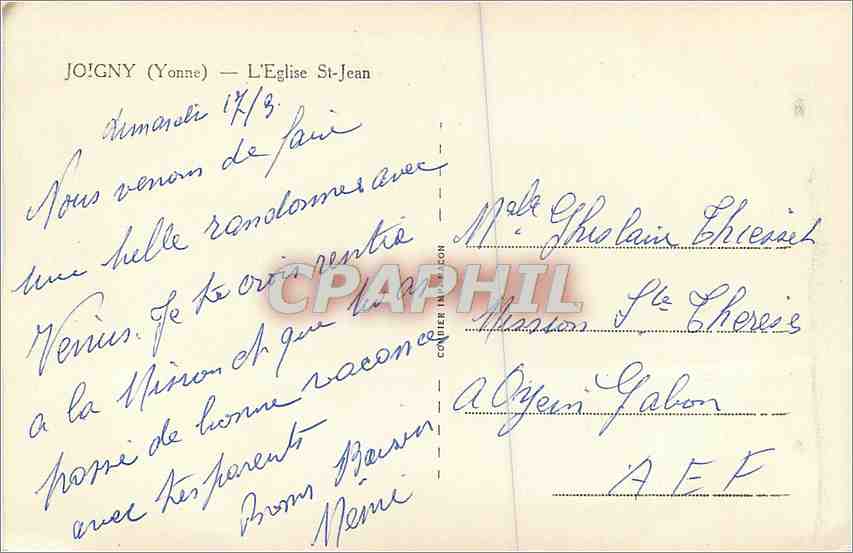 JOIGNY (Yonne) — L'Eglise St-Jean
17/9
Nous venons de faire
une belle randonnée avec
Venus. Je te crois rentré
a la Mission et que tu as
passé de bonne vacance
avec tes parents
Bons Baiser
Mémé
COMBIER IMP. MACON
CPAPHIL
Ghislain Thiesset
Mission Ste Therese
a Oyem Gabon
A E F